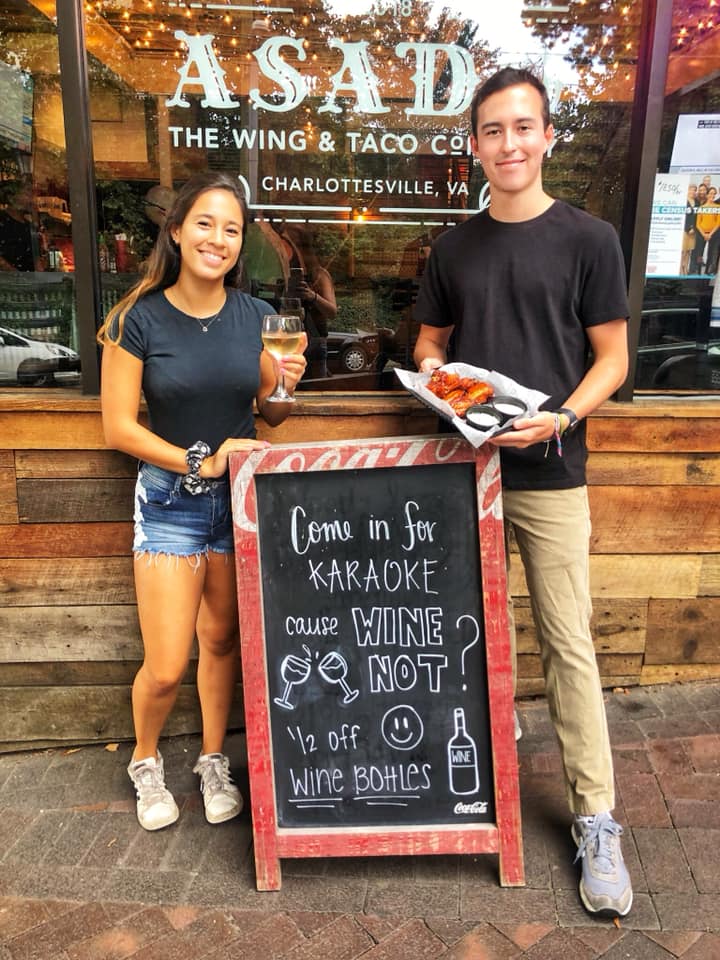 ASAD
THE WING & TACO CO
CHARLOTTESVILLE, VA
CENSUS TAKERS
Coca-Cola
Come in for
KARAOKE
cause WINE
NOT?
1/2 off
WINE
WINE BOttLES
Coca-Cola